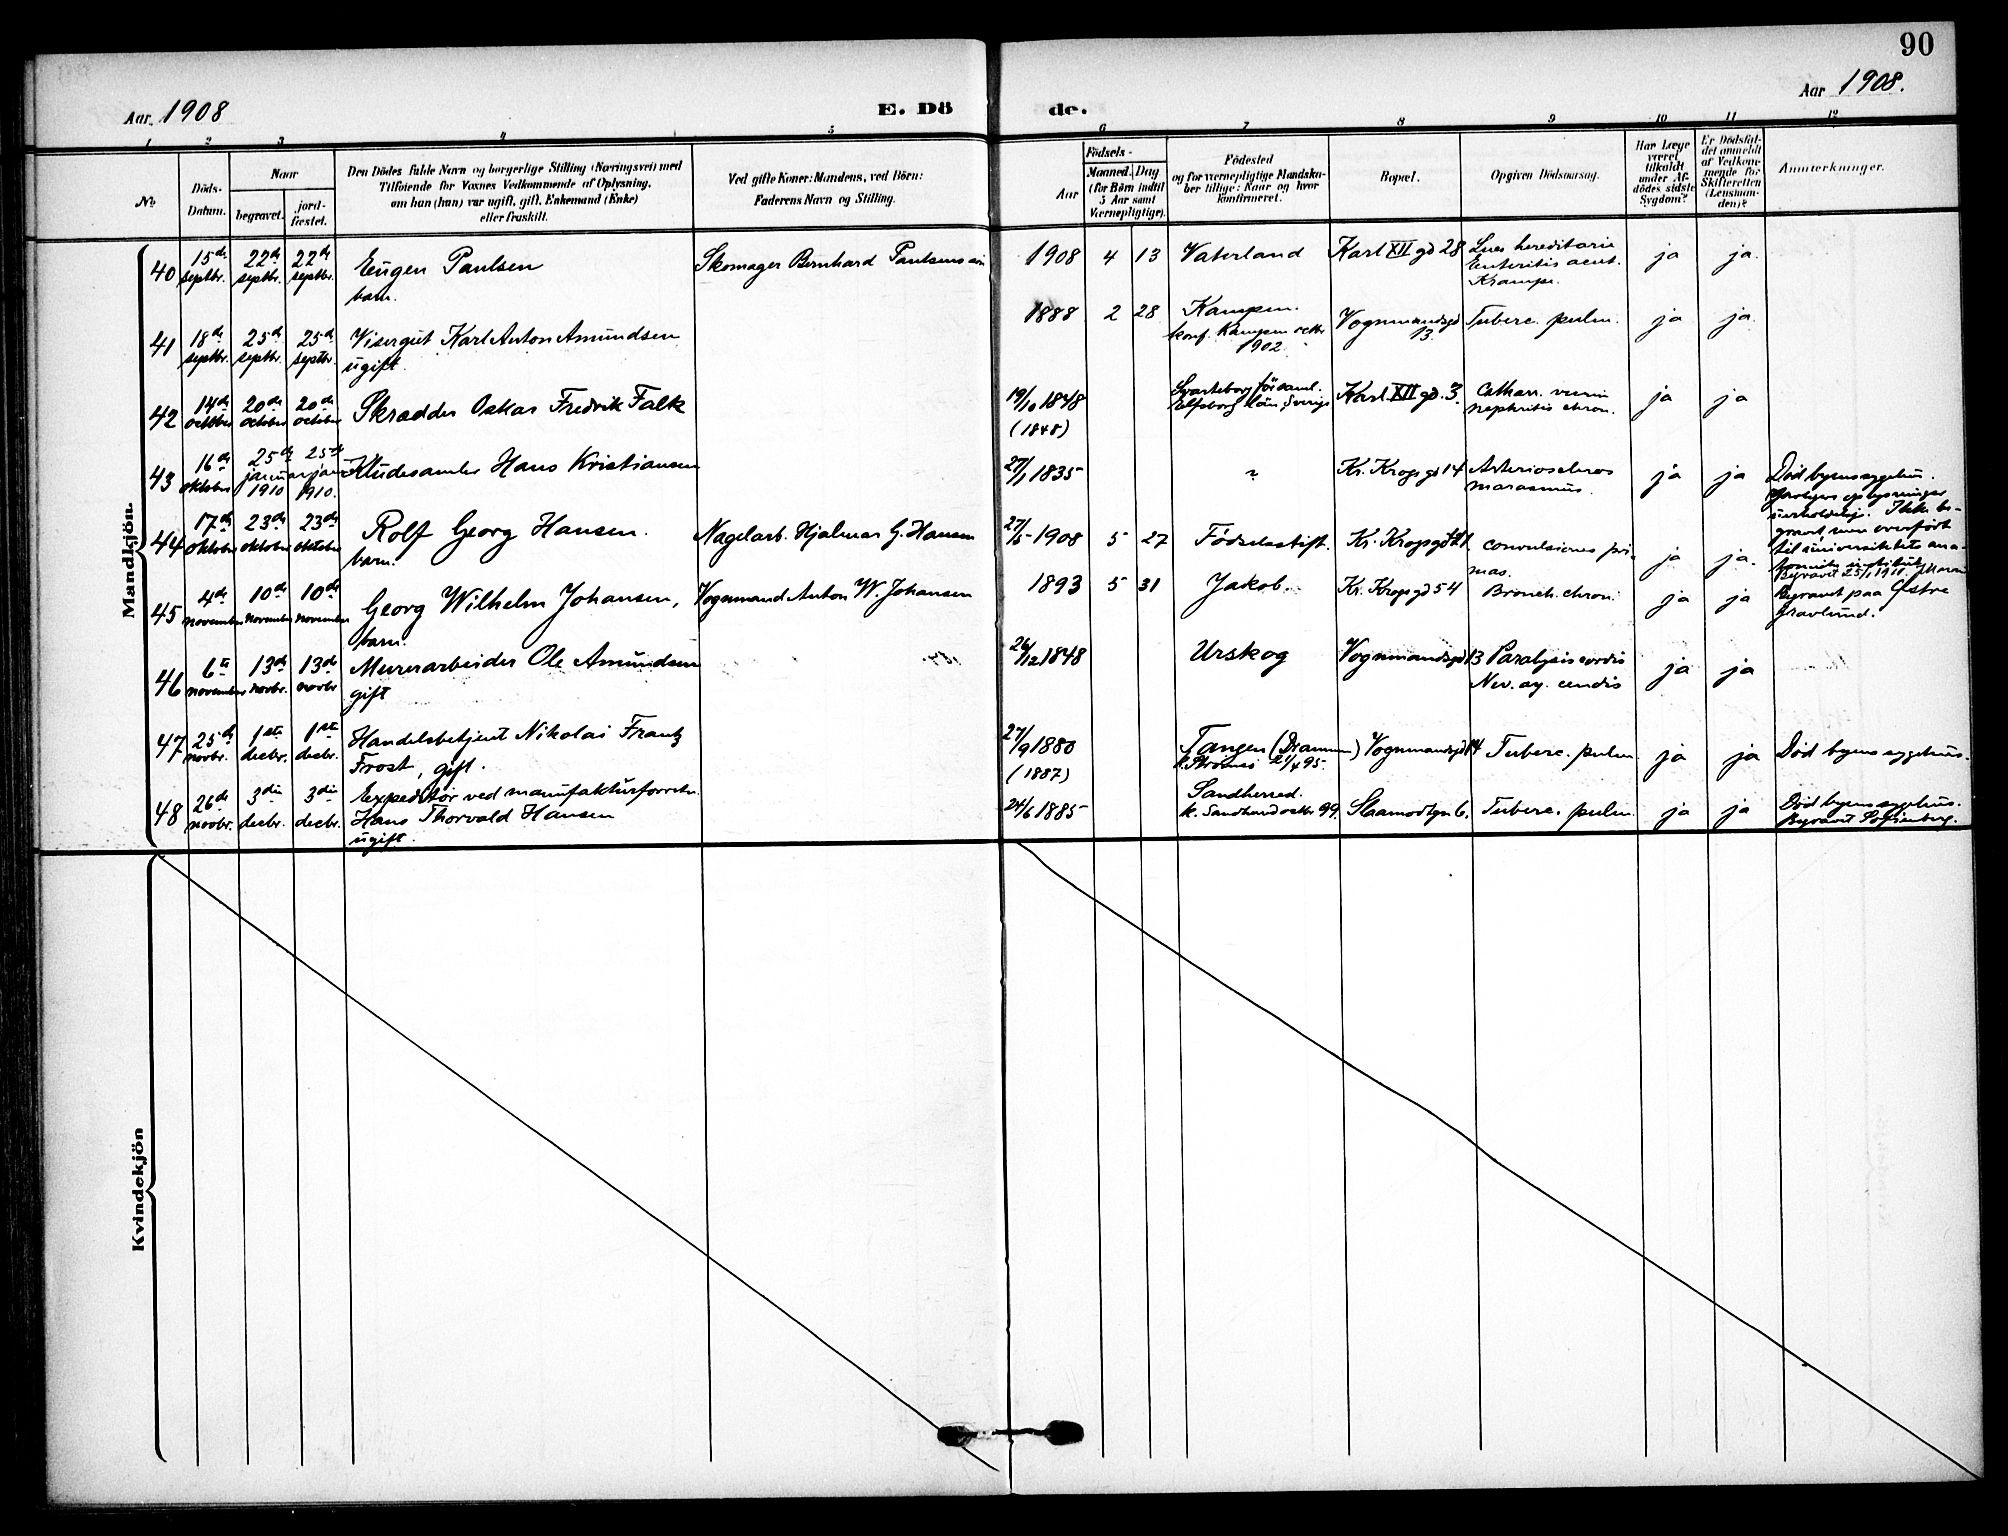 90
Aar 1908
E. Dö
de.
Aar 1908.
1 2 3 4 5 6 7 8 9 10 11 12
No.
Döds-
Datum.
Naar
begravet.
jord-
fæstet.
Den Dödes fulde Navn og borgerlige Stilling (Næringsvei) med
Tilföiende for Voxnes Vedkommende af Oplysning,
om han (hun) var ugift, gift, Enkemand (Enke)
eller fraskilt.
Ved gifte Koner: Mandens, ved Börn:
Faderens Navn og Stilling.
Födsels-
Aar
Maaned. Dag
(for Börn indtil
5 Aar samt
Værnepligtige).
Födested
og for værnepligtige Mandska-
ber tillige: Naar og hvor
konfirmeret.
Bopæl.
Opgiven Dödsaarsag.
Har Læge
været
tilkaldt
under Af-
dödes sidste
Sygdom?
Er Dödsfal-
det anmeldt
af Vedkom-
mende for
Skifteretten
(Lensman-
den)?
Anmærkninger.
Mandkjön.
40 15de septbr. 22de septbr. 22de septbr. Eugen Paulsen
barn.
Skomager Bernhard Paulsens
1908 4 13 Vaterland Karl XII gd 28 Lues hereditaria
Enteritis acut.
Krampe.
ja ja.
41 18de septbr. 25de septbr. 25de septbr. Visergut Karl Anton Amundsen
ugift.
1888 2 28 Kampen.
konf. Kampen octbr.
1902.
Vognmandsgd
13.
Tuberc. pulm. ja ja.
42 14de oktober 20de october 20de october Skrædder Oskar Fredrik Falk
19/10 1848
(1848)
Svarteborg församl.
Elfsborg län, Sverige
Karl XII gd. 3. Catharr.
nephritis chron.
ja ja
43 16de oktober 25de januar 1910 25de januar 1910. Kludesamler Hans Kristiansen
27/1 1835 Kr. Krogs gd 14 Arterioscleros
marasmus.
ja ja Död byens sygehus.
oplysninger
Ikke be-
gravet, men overført
til universitetets ana-
tomiske institut
Begravet 25/1 1910.
44 17de oktober 23de oktober 23de oktober Rolf Georg Hansen.
barn.
Nagelarb. Hjalmar G. Hansen
27/5 1908 5 27 Födselsstift. Kr. Krogsgd convulsiones pri-
mas.
ja ja.
45 4de november 10de november 10de november Georg Wilhelm Johansen,
barn.
Vognmand Anton W. Johansen
1893 5 31 Jakob. Kr. Krogsgd 54 Bronch. chron. ja ja Begravet paa Østre
gravlund.
46 6te november 13de novbr. 13de novbr Murerarbeider Ole Amundsen
gift
26/12 1848 Urskog Vognmandsgd 13 Paralysis cordis
ja ja
47 25de novbr. 1ste decbr. 1ste decbr. Handelsbetjent Nikolai Frantz
Frost, gift.
27/9 1880
(1887)
Tangen (Drammen)
k. Strømsø 21/4 95.
Vognmandsgd 14 Tuberc. pulm ja ja Död byens sygehus.
48 26de novbr. 3die decbr. 3die decbr. Expeditör ved manufakturforretn.
Hans Thorvald Hansen
ugift.
24/6 1885 Sandherred.
k. Sandherred octbr 99.
Slaamodtgn 6. Tuberc. pulm ja ja Död byens sygehus.
Begravet Sofienberg.
Kvindekjön